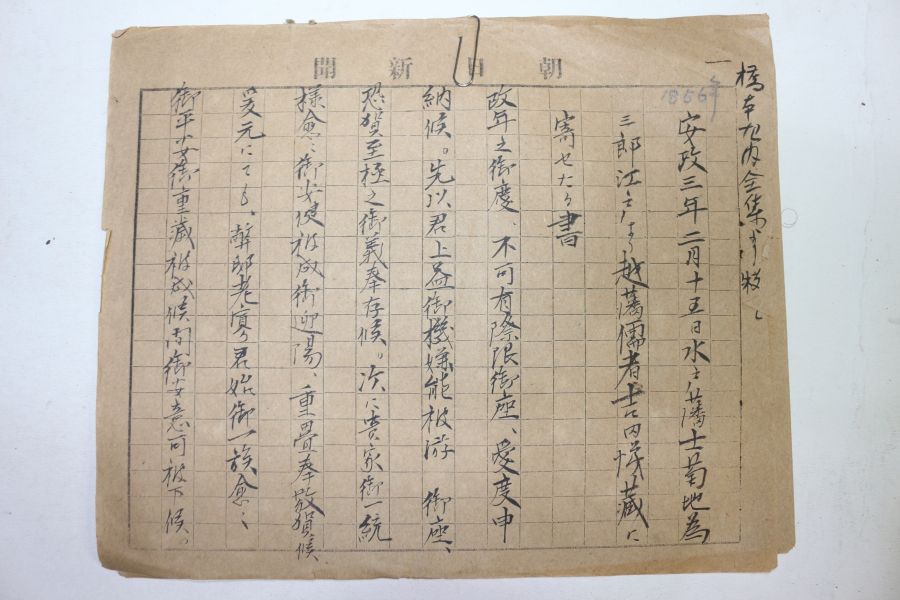 橋本左内全集より抜
一
1856年
朝日新聞
安政三年二月十五日水戸藩士菊地為
三郎江戸より越藩儒者吉田悌蔵に
寄せたる書
改年之御慶、不可有際限御座、愛度申
納候。先以君上益御機嫌能被游 御座、
恐賀至極之御義奉存候。次に貴家御一統
様愈〻御安健被成御迎陽、重畳奉敬賀候
爰元にても、幹郎老寡君始御一族愈〻
御平安御重歳被成候間御安意可被下候。